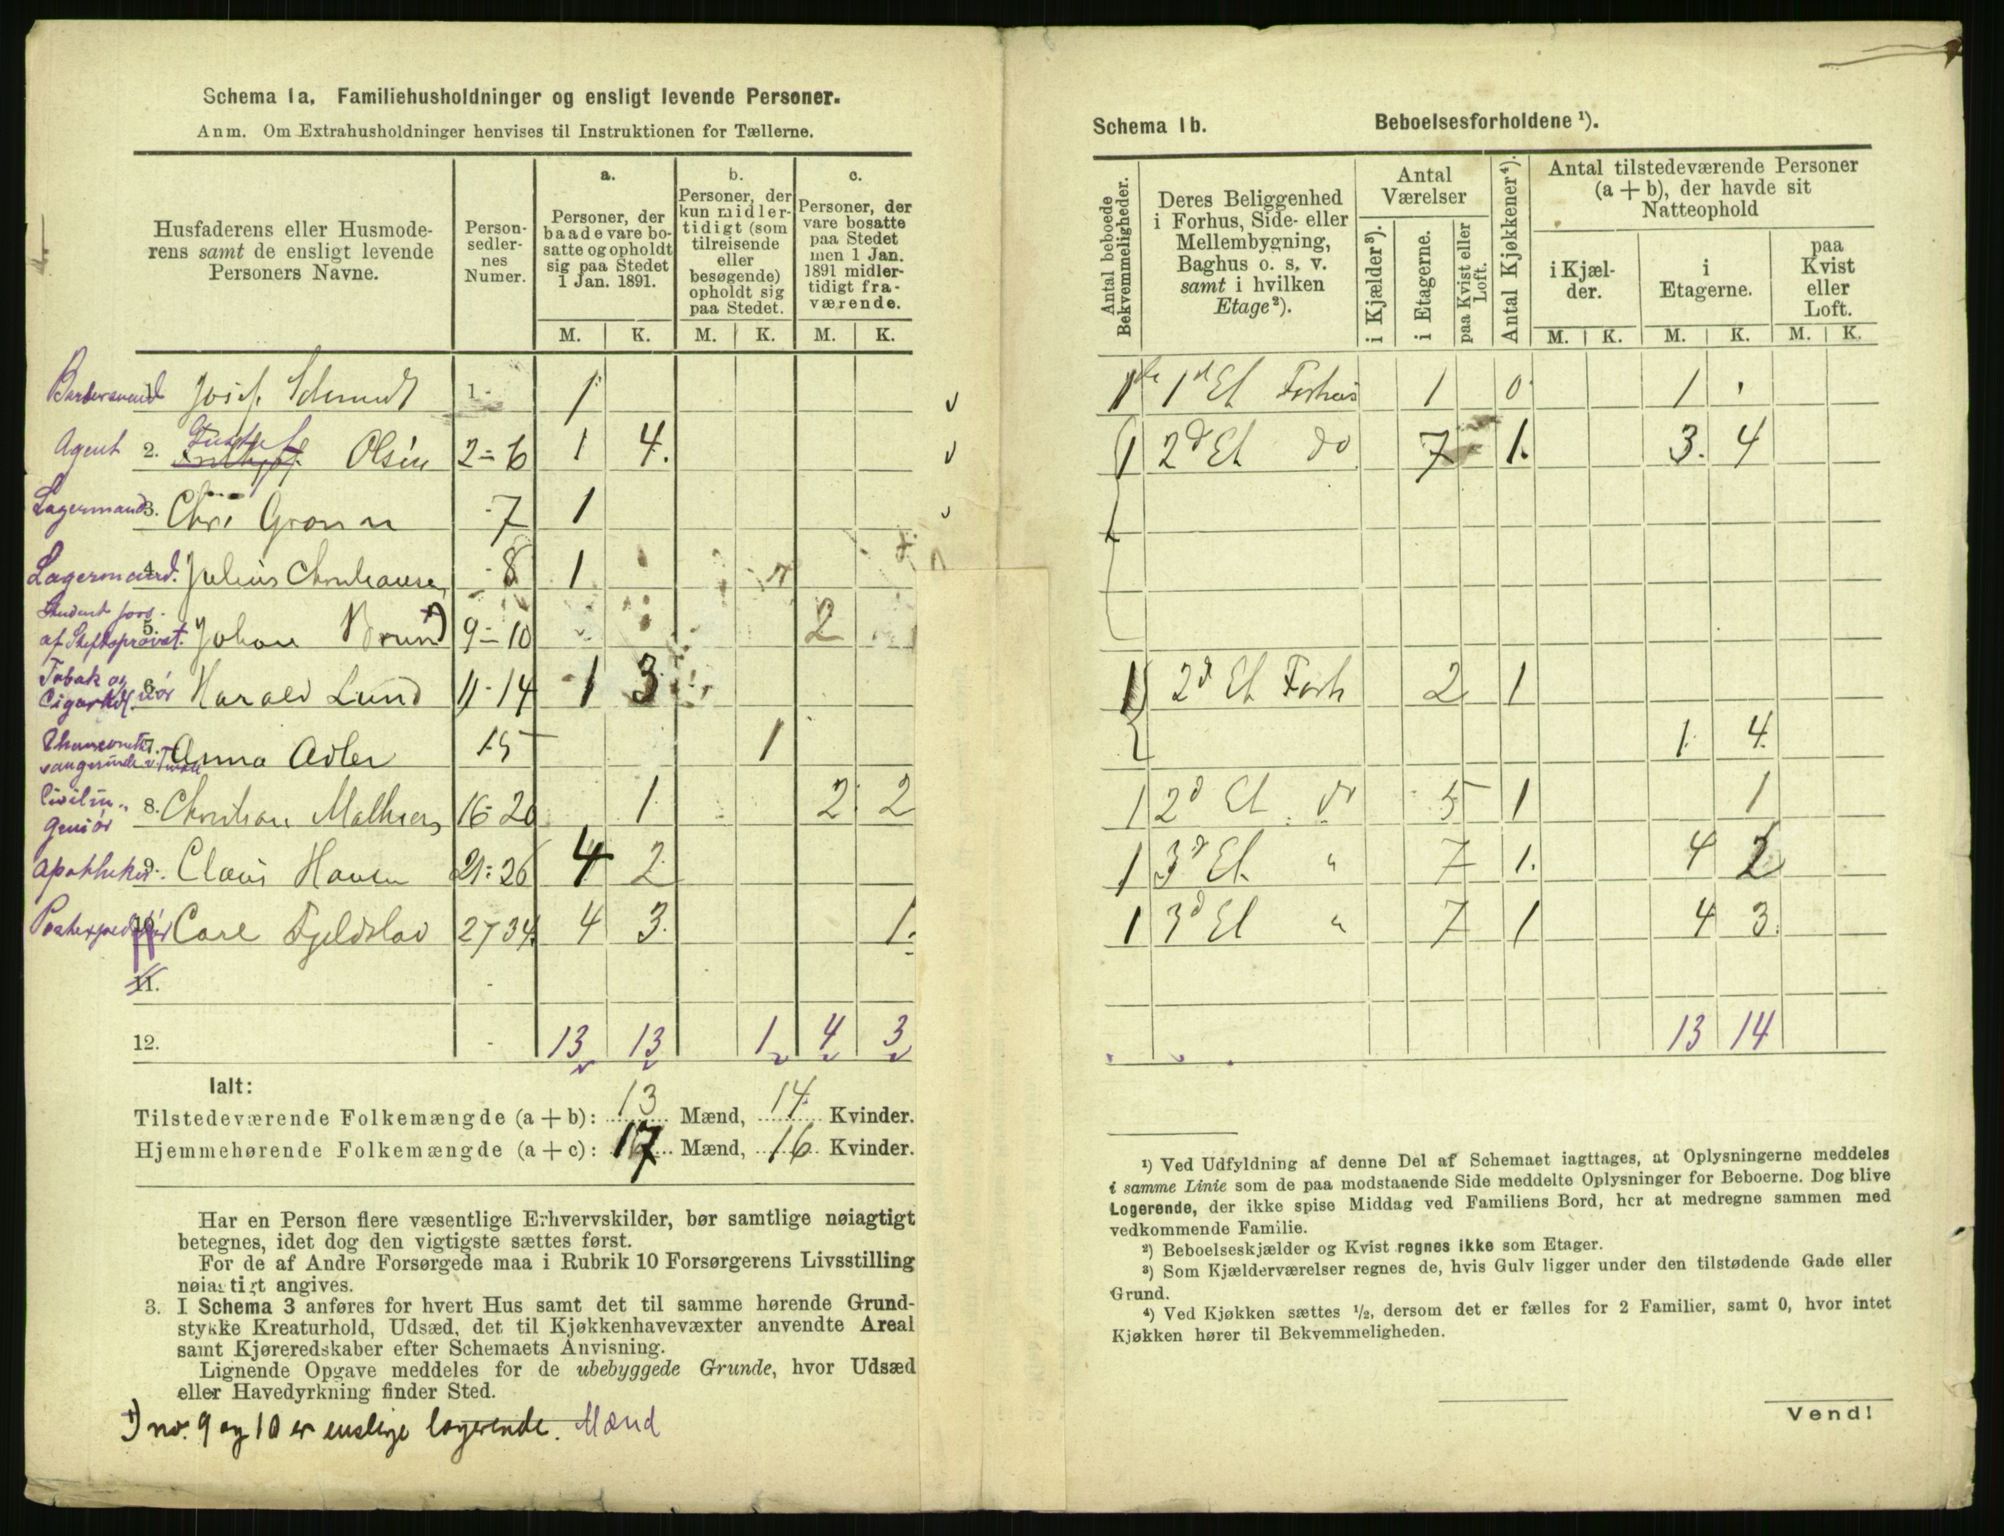 Schema 1a. Familiehusholdninger og ensligt levende Personer.
Anm. Om Extrahusholdninger henvises til Instruktionen for Tællerne.
Husfaderens eller Husmode-
rens samt de ensligt levende
Personers Navne.
Person-
sedler-
nes
Numer.
a.
Personer, der
baade vare bo-
satte og opholdt
sig paa Stedet
1 Jan. 1891.
b.
Personer, der
kun midler-
tidigt (som
tilreisende
eller
besøgende)
opholdt sig
paa Stedet.
c.
Personer, der
vare bosatte
paa Stedet
men 1 Jan.
1891 midler-
tidigt fra-
værende.
M. K. M. K. M. K.
1. 1 1
Agent 2. Olsen 2-6 1 4.
Lagermand 3. Chr. 7 1
Lagermand. 4. Julius 8 1
5. Johan Brun 9-10 2
Tobak og 6. Harald Lund 11-14 1 3
7. Anna Adler 15 1
Civilin-
geniør 8. Christian 16-20 1 2 2
Apotheker 9. Claus Hansen 21-26 4 2
10. Carl 27 34. 4 3. 1.
11.
12. 13 13 1 4 3
Ialt:
Tilstedeværende Folkemængde (a + b): 13 Mænd, 14 Kvinder.
Hjemmehørende Folkemængde (a + c): 17 Mænd, 16 Kvinder.
Har en Person flere væsentlige Erhvervskilder, bør samtlige nøiagtigt
betegnes, idet dog den vigtigste sættes først.
For de af Andre Forsørgede maa i Rubrik 10 Forsørgerens Livsstilling
nøiagtigt angives.
3. I Schema 3 anføres for hvert Hus samt det til samme hørende Grund-
stykke Kreaturhold, Udsæd, det til Kjøkkenhavevæxter anvendte Areal
samt Kjøreredskaber efter Schemaets Anvisning.
Lignende Opgave meddeles for de ubebyggede Grunde, hvor Udsæd
eller Havedyrkning finder Sted.
no. 9 og 10 er enslige logerende. Mænd
Schema 1b. Beboelsesforholdene ¹).
Antal beboede
Bekvemmeligheder.
Deres Beliggenhed
i Forhus, Side- eller
Mellembygning,
Baghus o. s. v.
samt i hvilken
Etage²).
Antal
Værelser
i Kjælder³).
i Etagerne.
paa Kvist eller
Loft.
Antal Kjøkkener⁴).
Antal tilstedeværende Personer
(a + b), der havde sit
Natteophold
i Kjæl-
der.
i
Etagerne.
paa
Kvist
eller
Loft.
M. K. M. K. M. K.
1 Et Forhus 1 0 1
1 2d Et do 7 1. 3. 4
1 2d Et Forh 2 1
1 4
1 2d Et do 5 1 1
1 3d Et. " 7 1. 4 2
1 3d Et " 7 1 4 3.
13 14
¹) Ved Udfyldning af denne Del af Schemaet iagttages, at Oplysningerne meddeles
i samme Linie som de paa modstaaende Side meddelte Oplysninger for Beboerne. Dog blive
Logerende, der ikke spise Middag ved Familiens Bord, her at medregne sammen med
vedkommende Familie.
²) Beboelseskjælder og Kvist regnes ikke som Etager.
³) Som Kjælderværelser regnes de, hvis Gulv ligger under den tilstødende Gade eller
Grund.
⁴) Ved Kjøkken sættes ½, dersom det er fælles for 2 Familier, samt 0, hvor intet
Kjøkken hører til Bekvemmeligheden.
Vend!